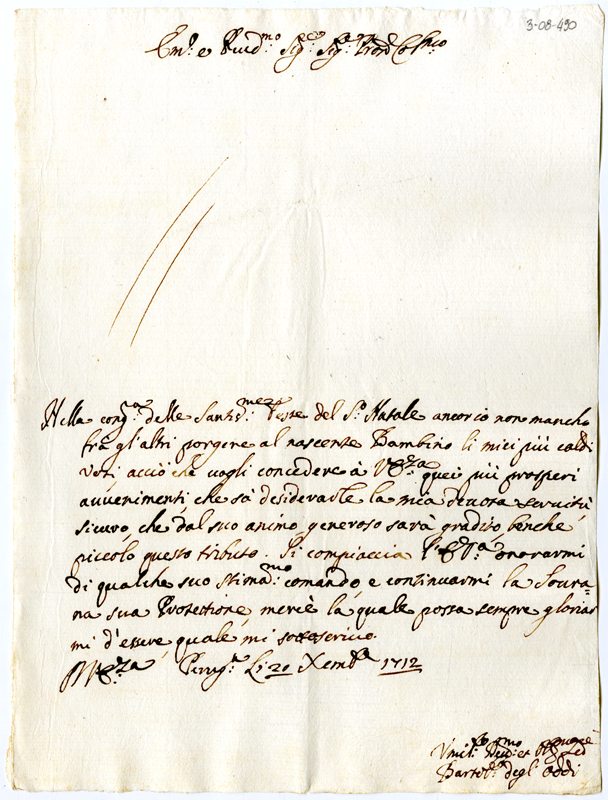 3-08-490
Em.o e Rev.mo Sig.re Sig.re Pron Col.mo
Nella cong.a delle Santis.me Feste del S.o Natale ancor io non mancho
frà gl'altri porgere al nascente Bambino li miei più caldi
voti, acciò che vogli concedere à V. Em.za quei più prosperi
avvenimenti, che sà desiderarle la mia devota servitù
sicuro, che dal suo animo generoso sarà gradito, benche
piccolo questo tributo. Si compiaccia V. Em.za onorarmi
di qualche suo stimat.mo comando, e continuarmi la Sovra=
na sua Protettione, mercè la quale possa sempre gloriar
mi d'essere, quale mi sottoscrivo.
Perug.a Li 20 Xemb.e 1712
Umil.mo Dev.mo et
Bartol.o degl' Oddi